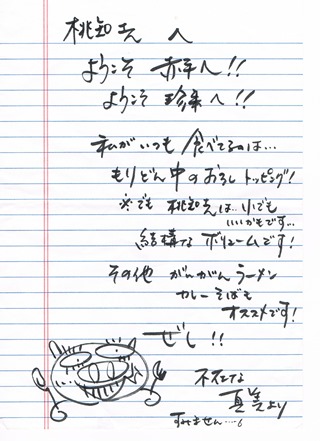 桃知さん へ
ようこそ 赤平へ!!
ようこそ 珍来へ!!
私がいつも 食べてるのは…
もりどん中のおろしトッピング!
※でも 桃知さんは…小でも
いいかもです…
結構な ボリュームです!
その他 がんがんラーメン
カレーそばも
オススメです!
ぜひ!!
不在な
真美より
すみません……